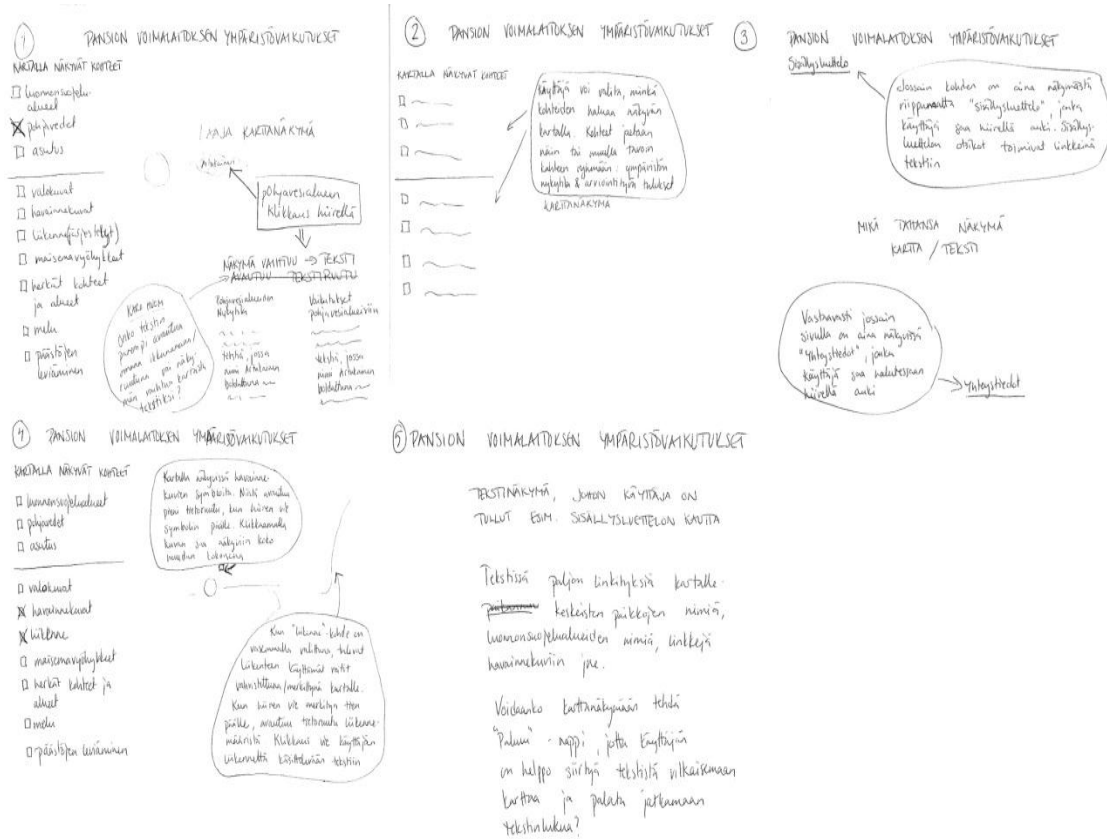 1
PANSION VOIMALAITOKSEN YMPÄRISTÖVAIKUTUKSET
KARTALLA NÄKYVÄT KOHTEET
luonnonsuojelu-
alueet
pohjavedet
asutus
LAAJA KARTTANÄKYMÄ
Artukainen
pohjavesialueen
klikkaus hiirellä
valokuvat
havainnekuvat
liikenne(järjestelyt)
maisemavyöhykkeet
herkät kohteet
ja alueet
melu
päästöjen
leviäminen
NÄKYMÄ VAIHTUU → TEKSTI
AVAUTUU TEKSTIRUUTU
Pohjavesialueiden
nykytila
tekstiä, jossa
nimi Artukainen
boldattuna
Vaikutukset
pohjavesialueisiin
tekstiä, jossa
nimi Artukainen
boldattuna
Onko tekstin
parempi avautua
omana ikkunanaan/
ruutuna vai näky-
män vaihtua kartasta
tekstiksi?
2
PANSION VOIMALAITOKSEN YMPÄRISTÖVAIKUTUKSET
KARTALLA NÄKYVÄT KOHTEET
Käyttäjä voi valita, minkä
kohteiden haluaa näkyvän
kartalla. Kohteet jaetaan
näin tai muulla tavoin
kahteen ryhmään: ympäristön
nykytila & arviointityön tulokset
KARTTANÄKYMÄ
3
PANSION VOIMALAITOKSEN YMPÄRISTÖVAIKUTUKSET
Sisällysluettelo
Jossain kohden on aina näkymästä
riippumatta "sisällysluettelo", jonka
käyttäjä saa hiirellä auki. Sisällys-
luettelon otsikot toimivat linkkeinä
tekstiin
MIKÄ TAHANSA NÄKYMÄ
KARTTA / TEKSTI
Vastaavasti jossain
sivulla on aina näkyvissä
"Yhteystiedot", jonka
käyttäjä saa halutessaan
hiirellä auki
Yhteystiedot
4
PANSION VOIMALAITOKSEN YMPÄRISÖVAIKUTUKSET
KARTALLA NÄKYVÄT KOHTEET
luonnonsuojelualueet
pohjavedet
asutus
valokuvat
havainnekuvat
liikenne
maisemavyöhykkeet
herkät kohteet ja
alueet
melu
päästöjen leviäminen
Kartalla näkyvissä havainne-
kuvien symboleita. Niistä avautuu
pieni tietoruutu, kun hiiren vie
symbolin päälle. Klikkaamalla
kuvan saa näkyviin koko
ruudun kokoisena
Kun "liikenne"-kohde on
vasemmalla valittuna, tulevat
liikenteen käyttämät reitit
vahvistettuna/merkittynä kartalle.
Kun hiiren vie merkityn tien
päälle, avautuu tietoruutu liikenne-
määristä. Klikkaus vie käyttäjän
liikennettä käsittelevään tekstiin
5
PANSION VOIMALAITOKSEN YMPÄRISTÖVAIKUTUKSET
TEKSTINÄKYMÄ, JOHON KÄYTTÄJÄ ON
TULLUT ESIM. SISÄLLYSLUETTELON KAUTTA
Tekstissä paljon linkityksiä kartalle.
keskeisten paikkojen nimiä,
luonnonsuojelualueiden nimiä, linkkejä
havainnekuviin jne.
Voidaanko karttanäkymään tehdä
"Paluu"-nappi, jotta käyttäjän
on helppo siirtyä tekstistä vilkaisemaan
karttaa ja palata jatkamaan
tekstinlukua?